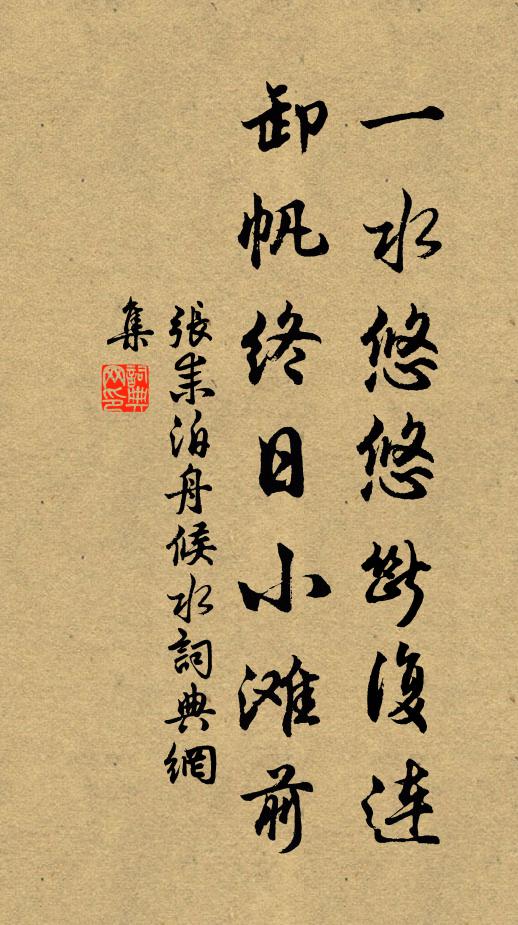 一水悠悠斷復連
卸帆終日小滩前
張耒泊舟候水詞典網
集
詞典
网印